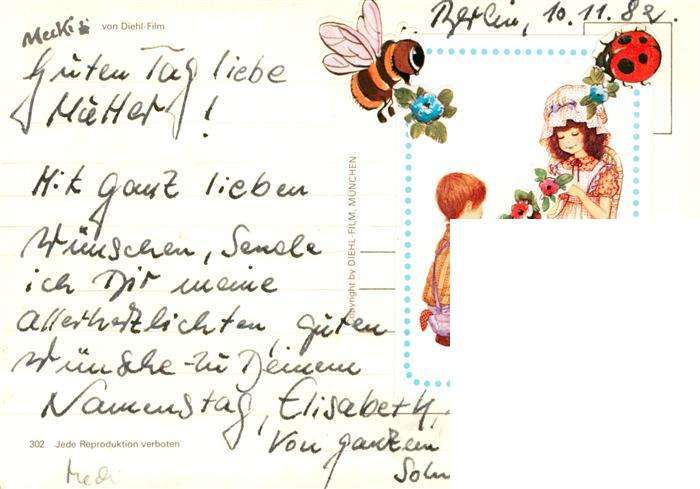 Berlin, 10.11.82.
Mecki von Diehl-Film
Guten Tag liebe
Mutter!
Mit ganz lieben
Wünschen, Sende
ich Dir meine
allerherzlichten, guten
Wünsche zu Deinem
Namenstag, Elisabeth,
Von ganzem
Sohn
Copyright by DIEHL-FILM, MÜNCHEN
302 Jede Reproduktion verboten